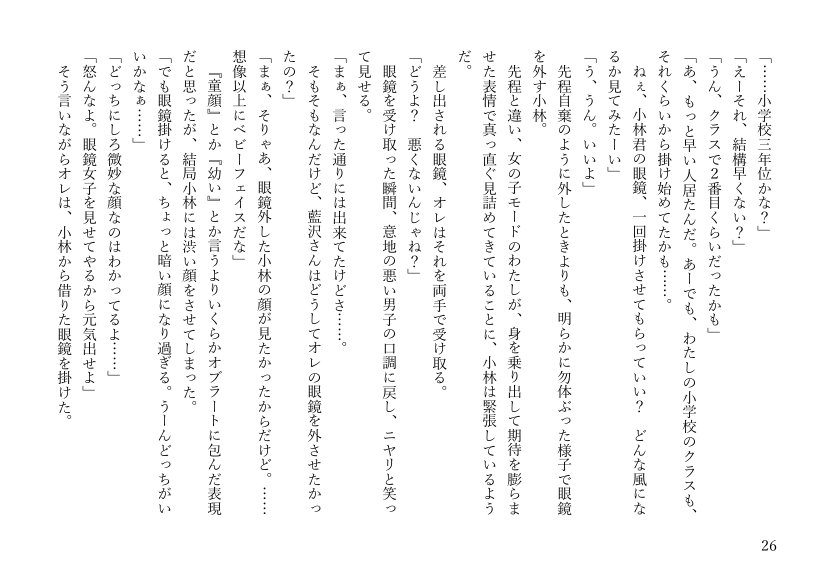 「……小学校三年位かな？」
「えーそれ、結構早くない？」
「うん、クラスで２番目くらいだったかも」
「あ、もっと早い人居たんだ。あーでも、わたしの小学校のクラスも、
それくらいから掛け始めてたかも……。
　ねぇ、小林君の眼鏡、一回掛けさせてもらっていい？　どんな風にな
るか見てみたーい」
「う、うん。いいよ」
　先程自棄のように外したときよりも、明らかに勿体ぶった様子で眼鏡
を外す小林。
　先程と違い、女の子モードのわたしが、身を乗り出して期待を膨らま
せた表情で真っ直ぐ見詰めてきていることに、小林は緊張しているよう
だ。
　差し出される眼鏡、オレはそれを両手で受け取る。
「どうよ？　悪くないんじゃね？」
　眼鏡を受け取った瞬間、意地の悪い男子の口調に戻し、ニヤリと笑っ
て見せる。
「まぁ、言った通りには出来てたけどさ……。
　そもそもなんだけど、藍沢さんはどうしてオレの眼鏡を外させたかっ
たの？」
「まぁ、そりゃあ、眼鏡外した小林の顔が見たかったからだけど。……
想像以上にベビーフェイスだな」
　『童顔』とか『幼い』とか言うよりいくらかオブラートに包んだ表現
だと思ったが、結局小林には渋い顔をさせてしまった。
「でも眼鏡掛けると、ちょっと暗い顔になり過ぎる。うーんどっちがい
いかなぁ……」
「どっちにしろ微妙な顔なのはわかってるよ……」
「怒んなよ。眼鏡女子を見せてやるから元気出せよ」
　そう言いながらオレは、小林から借りた眼鏡を掛けた。
26